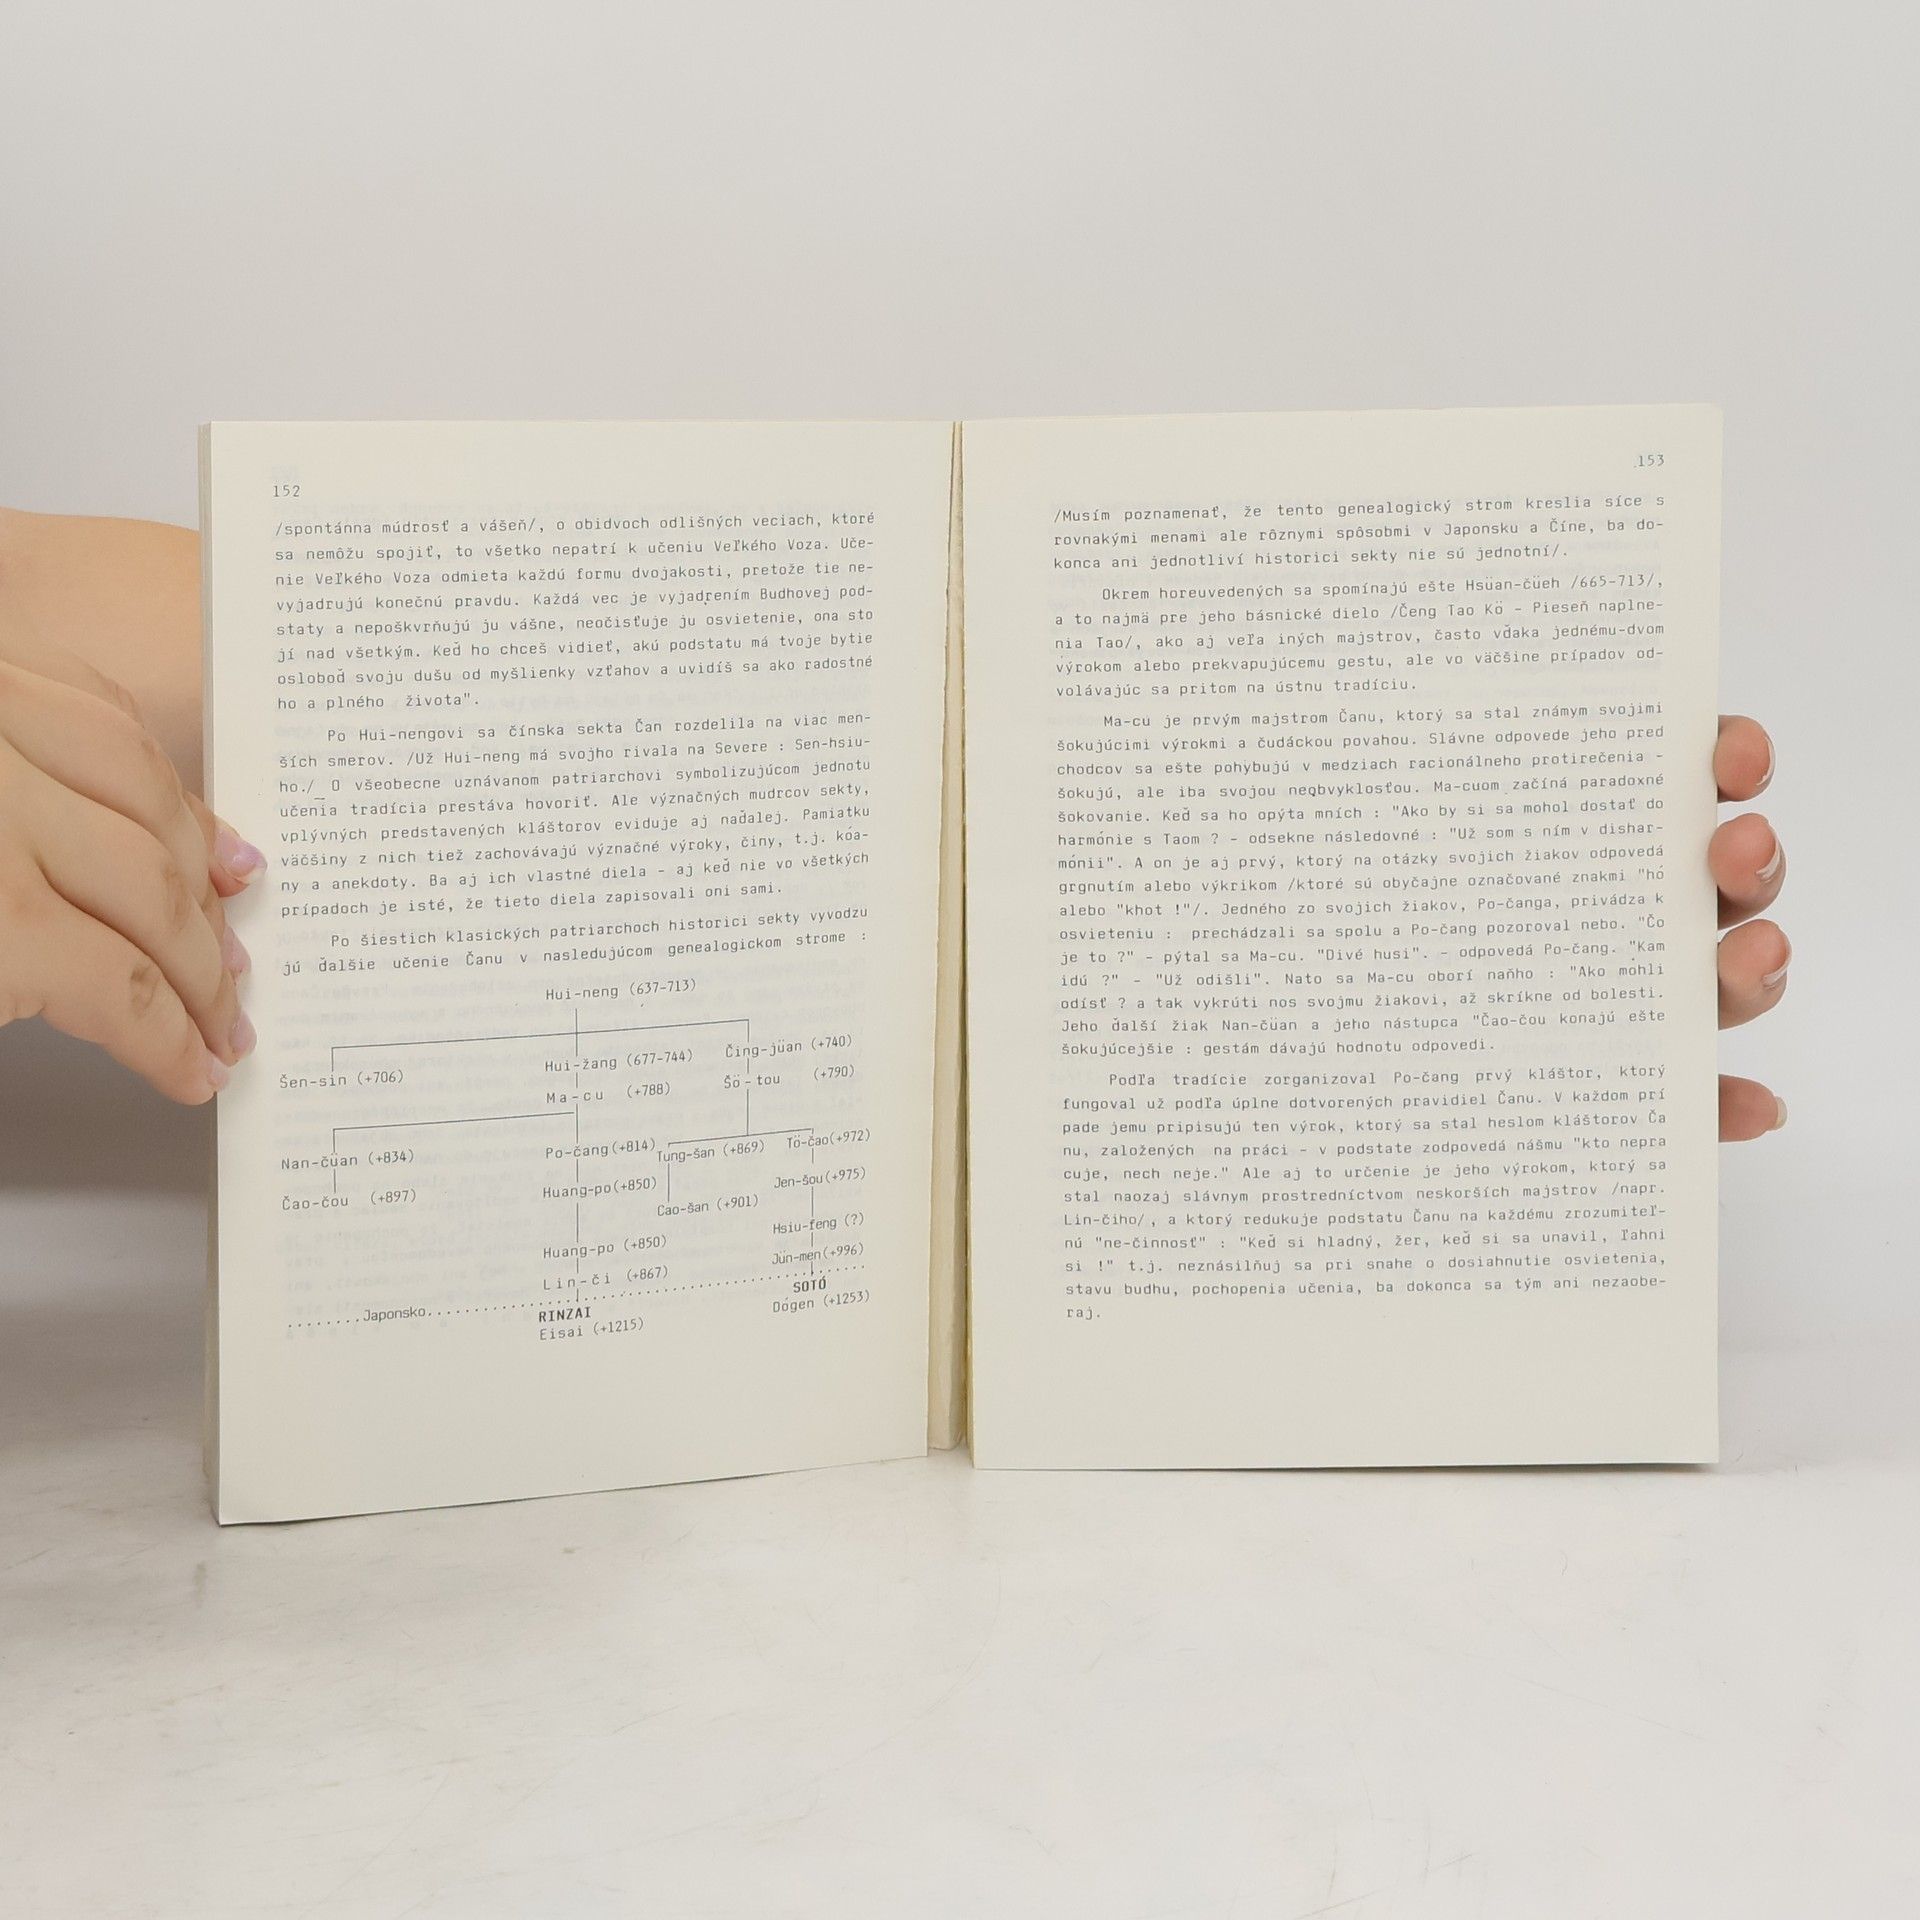 152
/spontánna múdrosť a vášeň/, o obidvoch odlišných veciach, ktoré
sa nemôžu spojiť, to všetko nepatrí k učeniu Veľkého Voza. Uče-
nie Veľkého Voza odmieta každú formu dvojakosti, pretože tie ne-
vyjadrujú konečnú pravdu. Každá vec je vyjadrením Budhovej pod-
staty a nepoškvrňujú ju vášne, neočisťuje ju osvietenie, ona sto
jí nad všetkým. Keď ho chceš vidieť, akú podstatu má tvoje bytie
osloboď svoju dušu od myšlienky vzťahov a uvidíš sa ako radostné
ho a plného života".
Po Hui-nengovi sa čínska sekta Čan rozdelila na viac men-
ších smerov. /Už Hui-neng má svojho rivala na Severe : Sen-hsiu-
ho./ O všeobecne uznávanom patriarchovi symbolizujúcom jednotu
učenia tradícia prestáva hovoriť. Ale význačných mudrcov sekty,
vplývných predstavených kláštorov eviduje aj naďalej. Pamiatku
väčšiny z nich tiež zachovávajú význačné výroky, činy, t.j. kóa-
ny a anekdoty. Ba aj ich vlastné diela - aj keď nie vo všetkých
prípadoch je isté, že tieto diela zapisovali oni sami.
Po šiestich klasických patriarchoch historici sekty vyvodzu
jú ďalšie učenie Čanu v nasledujúcom genealogickom strome :
Hui-neng (637-713)
Šen-sin (+706)
Hui-žang (677-744)
Čing-jüan (+740)
Ma-cu (+788)
Šö-tou (+790)
Nan-čüan (+834)
Po-čang (+814)
Tung-šan (+869)
Tö-čao (+972)
Čao-čou (+897)
Huang-po (+850)
Cao-šan (+901)
Jen-šou (+975)
Hsiu-feng (?)
Huang-po (+850)
Jün-men (+996)
Lin-či (+867)
........Japonsko........
RINZAI
SOTÓ
Eisai (+1215)
Dógen (+1253)
153
/Musím poznamenať, že tento genealogický strom kreslia síce s
rovnakými menami ale rôznymi spôsobmi v Japonsku a Číne, ba do-
konca ani jednotliví historici sekty nie sú jednotní/.
Okrem horeuvedených sa spomínajú ešte Hsüan-čüeh /665-713/,
a to najmä pre jeho básnické dielo /Čeng Tao Kö - Pieseň naplne-
nia Tao/, ako aj veľa iných majstrov, často vďaka jednému-dvom
výrokom alebo prekvapujúcemu gestu, ale vo väčšine prípadov od-
volávajúc sa pritom na ústnu tradíciu.
Ma-cu je prvým majstrom Čanu, ktorý sa stal známym svojimi
šokujúcimi výrokmi a čudáckou povahou. Slávne odpovede jeho pred
chodcov sa ešte pohybujú v medziach racionálneho protirečenia -
šokujú, ale iba svojou neobvyklosťou. Ma-cuom začíná paradoxné
šokovanie. Keď sa ho opýta mních : "Ako by si sa mohol dostať do
harmónie s Taom ? - odsekne následovné : "Už som s ním v dishar-
mónii". A on je aj prvý, ktorý na otázky svojich žiakov odpovedá
grgnutím alebo výkrikom /ktoré sú obyčajne označované znakmi "hó
alebo "khot !"/. Jedného zo svojich žiakov, Po-čanga, privádza k
osvieteniu : prechádzali sa spolu a Po-čang pozoroval nebo. "Čo
je to ?" - pýtal sa Ma-cu. "Divé husi". - odpovedá Po-čang. "Kam
idú ?" - "Už odišli". Nato sa Ma-cu oborí naňho : "Ako móhli
odísť ? a tak vykrúti nos svojmu žiakovi, až skríkne od bolesti.
Jeho ďalší žiak Nan-čüan a jeho nástupca "Čao-čou konajú ešte
šokujúcejšie : gestám dávajú hodnotu odpovedi.
Podľa tradície zorganizoval Po-čang prvý kláštor, ktorý
fungoval už podľa úplne dotvorených pravidiel Čanu. V každom prí
pade jemu pripisujú ten výrok, ktorý sa stal heslom kláštorov Ča
nu, založených na práci - v podstate zodpovedá nášmu "kto nepra
cuje, nech neje." Ale aj to určenie je jeho výrokom, ktorý sa
stal naozaj slávnym prostredníctvom neskorších majstrov /napr.
Lin-čiho/, a ktorý redukuje podstatu Čanu na každému zrozumiteľ-
nú "ne-činnosť" : "Keď si hladný, žer, keď si sa unavil, ľahni
si !" t.j. neznásilňuj sa pri snahe o dosiahnutie osvietenia,
stavu budhu, pochopenia učenia, ba dokonca sa tým ani nezaobe-
raj.